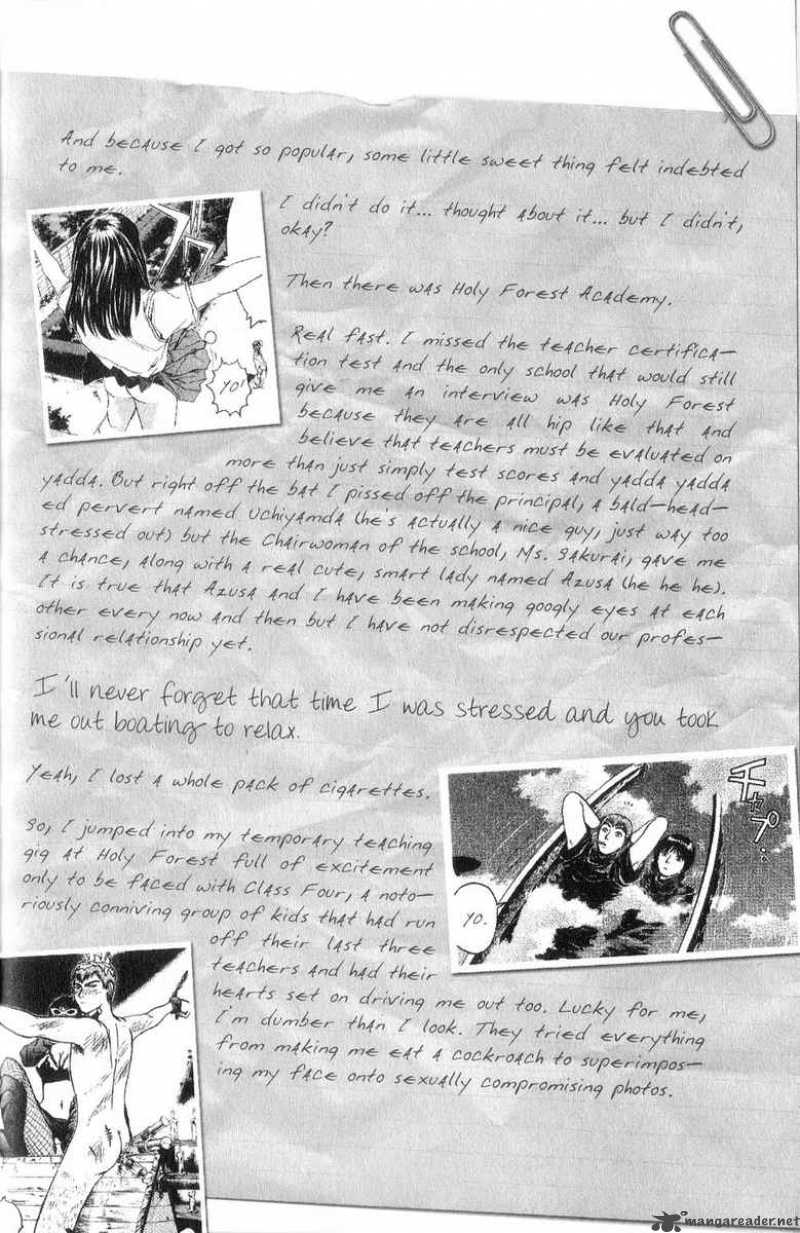 And because I got so popular, some little sweet thing felt indebted
to me.
I didn't do it... thought about it... but I didn't,
okay?
Then there was Holy Forest Academy.
Real fast. I missed the teacher certifica-
tion test and the only school that would still
give me an interview was Holy Forest
because they are all hip like that and
believe that teachers must be evaluated on
more than just simply test scores and yadda yadda
yadda. But right off the bat I pissed off the principal, a bald-head-
ed pervert named Uchiyamda (he's actually a nice guy, just way too
stressed out) but the Chairwoman of the school, Ms. Sakurai, gave me
a chance, along with a real cute, smart lady named Azusa (he he he).
It is true that Azusa and I have been making googly eyes at each
other every now and then but I have not disrespected our profes-
sional relationship yet.
YO!
I'll never forget that time I was stressed and you took
me out boating to relax.
Yeah, I lost a whole pack of cigarettes.
So, I jumped into my temporary teaching
gig at Holy Forest full of excitement
only to be faced with Class Four, a noto-
riously conniving group of kids that had run
off their last three
teachers and had their
hearts set on driving me out too. Lucky for me,
I'm dumber than I look. They tried everything
from making me eat a cockroach to superimpos-
ing my face onto sexually compromising photos.
チャプ…
YO.
mangareader.net